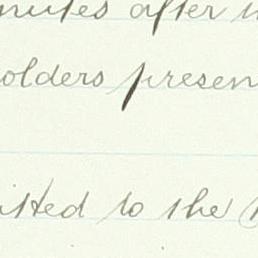 nutes after
olders presen
itted to the